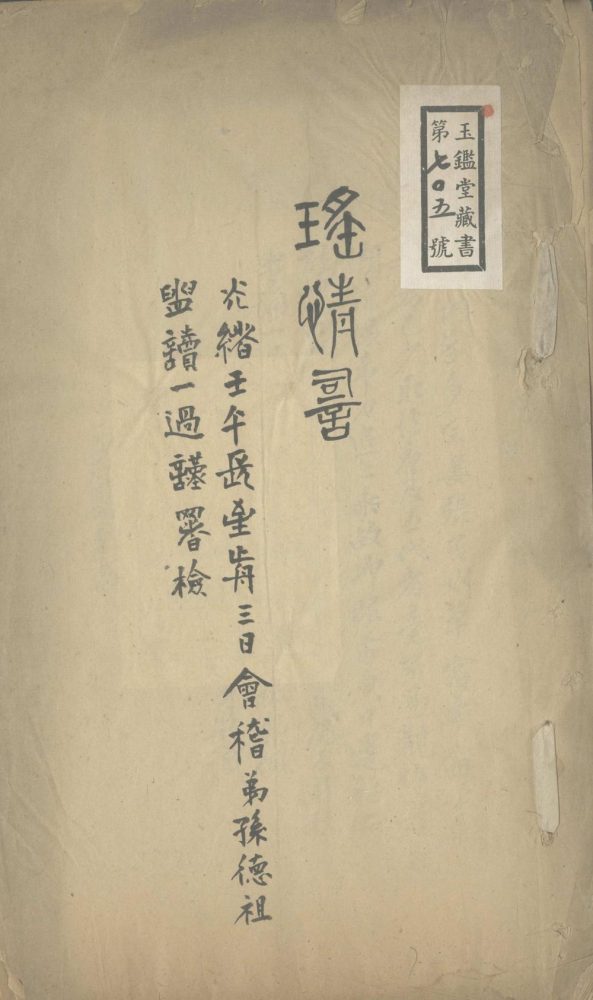 玉鑑堂藏書
第七〇五號
瑤情䛐
光緒壬午長至前三日會稽弟孫德祖
盥讀一過謹署檢